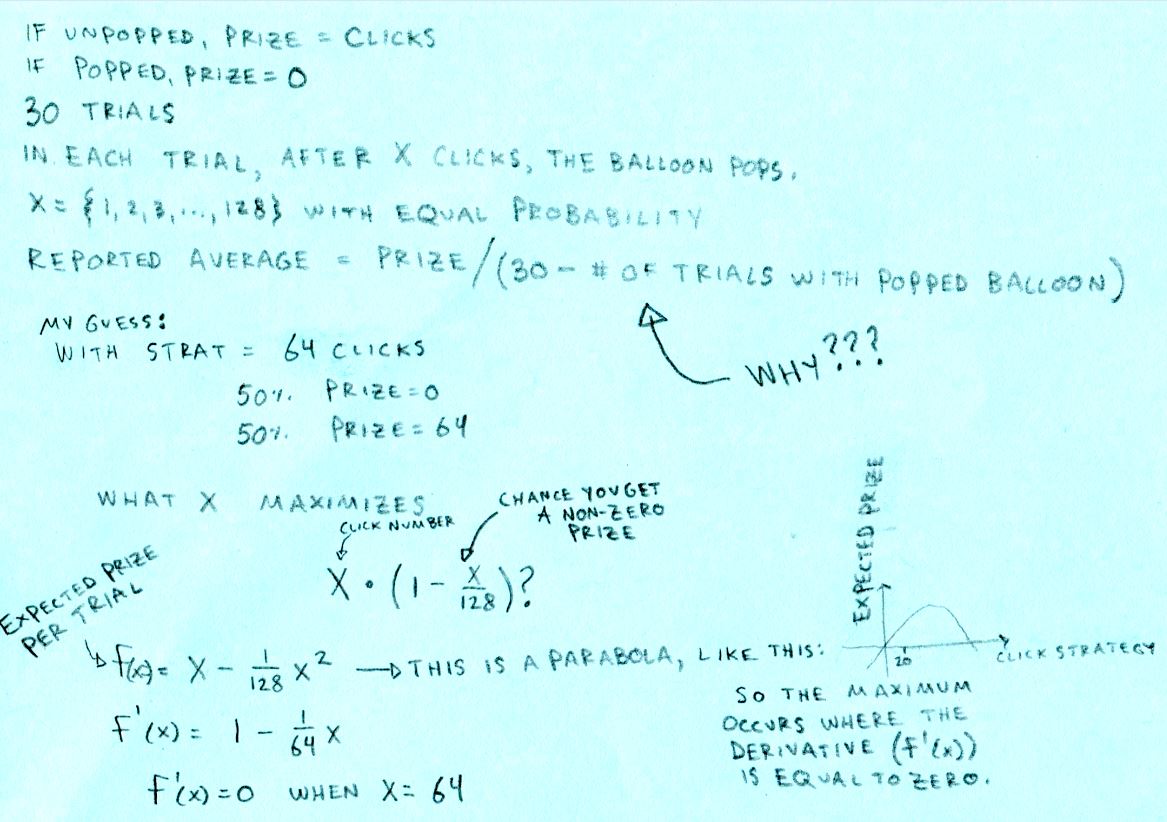 IF UNPOPPED, PRIZE = CLICKS
IF POPPED, PRIZE = 0
30 TRIALS
IN EACH TRIAL, AFTER X CLICKS, THE BALLOON POPS.
X = {1, 2, 3, ..., 128} WITH EQUAL PROBABILITY
REPORTED AVERAGE = PRIZE/(30 - # OF TRIALS WITH POPPED BALLOON)
WHY???
MY GUESS:
WITH STRAT = 64 CLICKS
50% PRIZE=0
50% PRIZE = 64
WHAT X MAXIMIZES
CLICK NUMBER
CHANCE YOU GET
A NON-ZERO
PRIZE
X • (1 - X/128)?
EXPECTED PRIZE
PER TRIAL
f(x) = X - 1/128 X² → THIS IS A PARABOLA, LIKE THIS:
EXPECTED PRIZE
20
CLICK STRATEGY
f'(x) = 1 - 1/64 X
f'(x) = 0 WHEN X = 64
SO THE MAXIMUM
OCCURS WHERE THE
DERIVATIVE (f'(x))
IS EQUAL TO ZERO.